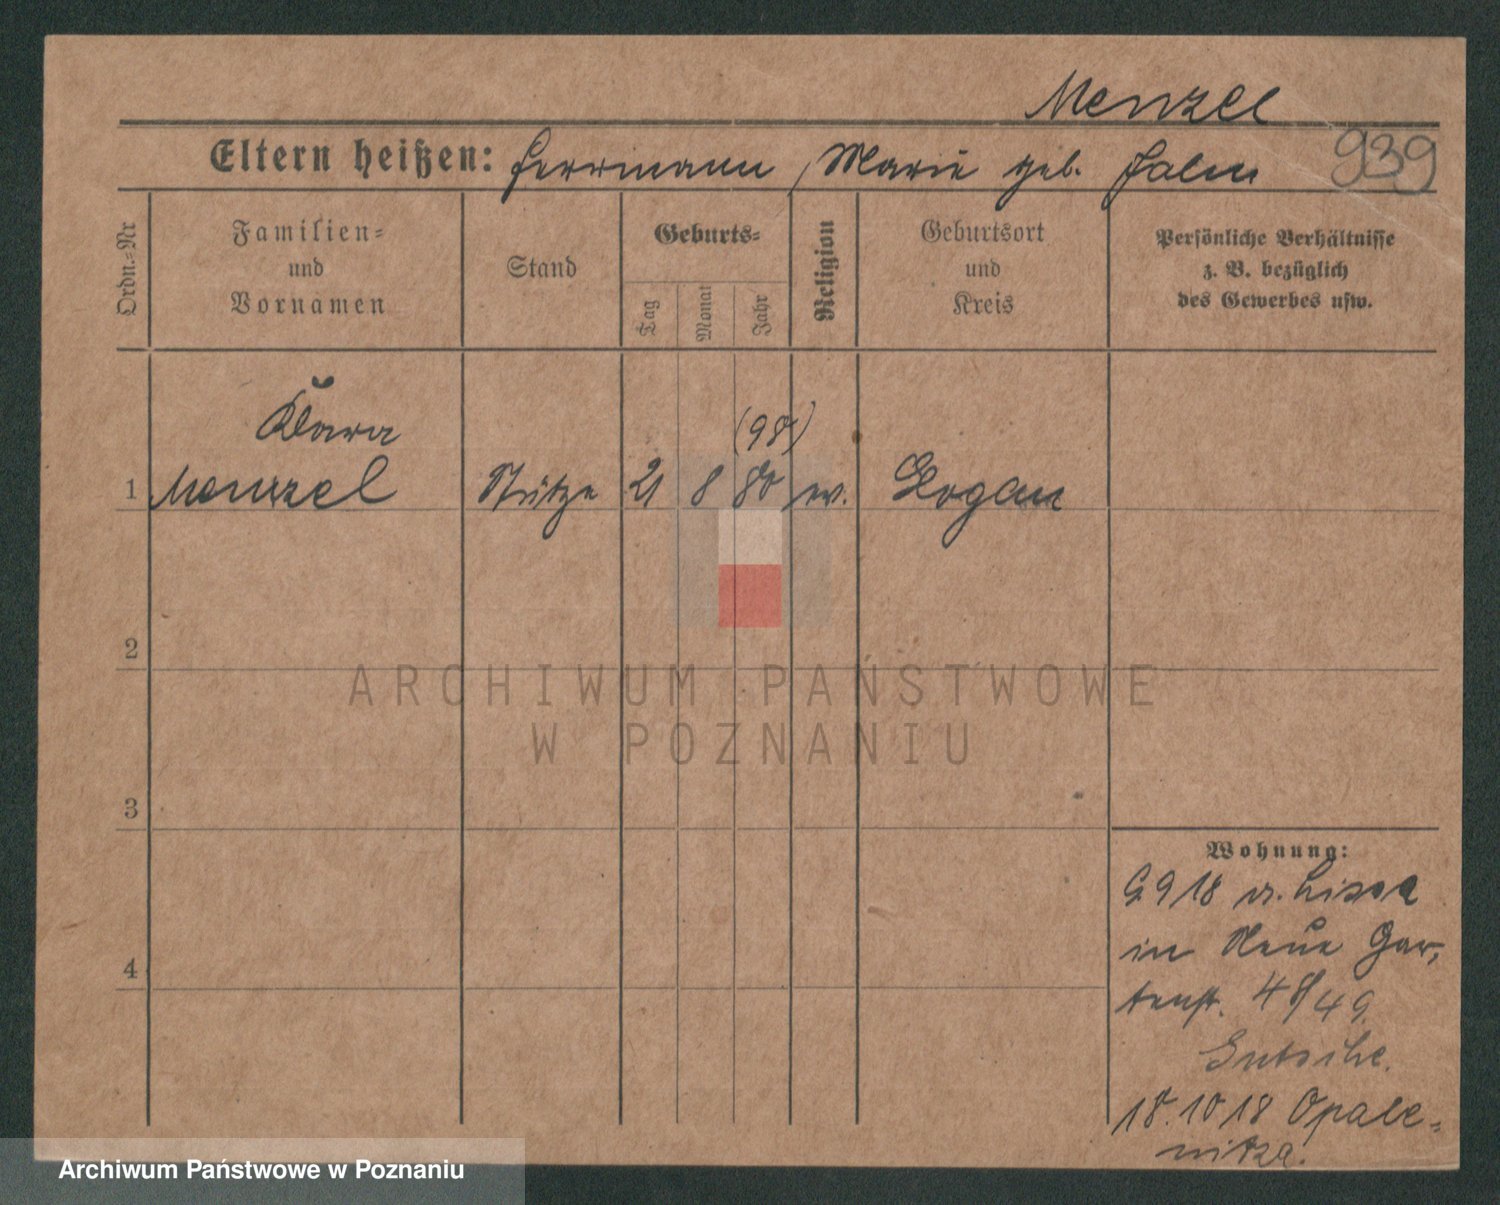 Menzel
Eltern heißen: Herrmann, Marie geb.
939
Ordn.-Nr
Familien=
und
Vornamen
Stand
Geburts=
Tag
Monat
Jahr
Religion
Geburtsort
und
Kreis
Persönliche Verhältnisse
z. B. bezüglich
des Gewerbes usw.
Klara
(98)
1 Menzel Stütze 21 8 80 ev. Glogau
2
3
4
ARCHIWUM PAŃSTWOWE
W POZNANIU
Wohnung:
9 18 v. Lissa
in Neue Gar,
tenstr. 48/49.
18.10 18 Opale=
nitza.
Archiwum Państwowe w Poznaniu